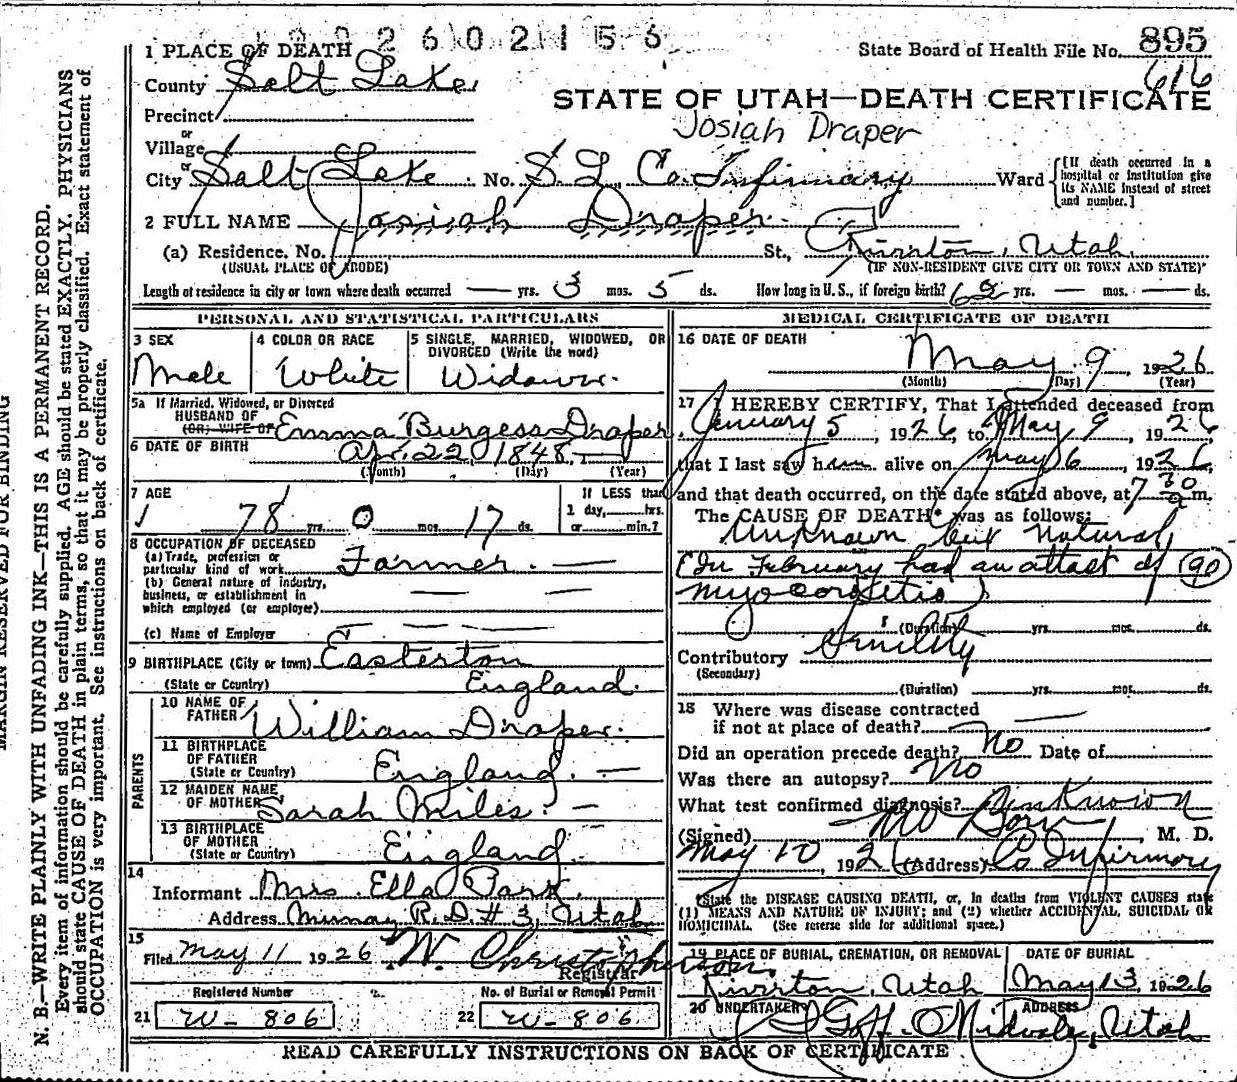 2 6 0 2 1 5 6
1 PLACE OF DEATH
State Board of Health File No. 895
616
County Salt Lake
STATE OF UTAH—DEATH CERTIFICATE
Precinct
Josiah Draper
or
Village
or
City Salt Lake No. S. L. Co. Infirmary Ward [If death occurred in a hospital or institution give its NAME instead of street and number.]
2 FULL NAME Josiah Draper
(a) Residence. No. St., Riverton, Utah.
(USUAL PLACE OF ABODE) (IF NON-RESIDENT GIVE CITY OR TOWN AND STATE)
Length of residence in city or town where death occurred — yrs. 3 mos. 5 ds. How long in U.S., if foreign birth? yrs. — mos. — ds.
PERSONAL AND STATISTICAL PARTICULARS
3 SEX
Male
4 COLOR OR RACE
White
5 SINGLE, MARRIED, WIDOWED, OR DIVORCED (Write the word)
Widower.
5a If Married, Widowed, or Divorced
HUSBAND OF
(OR) WIFE OF Emma Burgess Draper
6 DATE OF BIRTH Apr. 22, 1848. —
(Month) (Day) (Year)
7 AGE
78 yrs. 0 mos. 17 ds.
If LESS than
1 day, hrs.
or min.?
8 OCCUPATION OF DECEASED
(a) Trade, profession or
particular kind of work Farmer. —
(b) General nature of industry,
business, or establishment in
which employed (or employer)
(c) Name of Employer
9 BIRTHPLACE (City or town) Easterton
(State or Country) England.
PARENTS
10 NAME OF
FATHER William Draper.
11 BIRTHPLACE
OF FATHER
(State or Country) England. —
12 MAIDEN NAME
OF MOTHER Sarah Miles. —
13 BIRTHPLACE
OF MOTHER
(State or Country) England.
14
Informant Mrs. Ella Park.
Address Murray R.D. #3, Utah
15
Filed May 11 1926 W. Christopherson.
Registrar
Registered Number
21 W - 806
No. of Burial or Removal Permit
22 W - 806
MEDICAL CERTIFICATE OF DEATH
16 DATE OF DEATH
May 9, 1926
(Month) (Day) (Year)
17 I HEREBY CERTIFY, That I attended deceased from
January 5, 1926, to May 9, 1926
that I last saw him alive on May 6, 1926,
and that death occurred, on the date stated above, at 7 30 a.m.
The CAUSE OF DEATH* was as follows:
Unknown but natural,
(In February had an attack of 90
myocarditis)
(Duration) yrs. mos. ds.
Contributory Senility
(Secondary)
(Duration) yrs. mos. ds.
18 Where was disease contracted
if not at place of death?
Did an operation precede death? No Date of
Was there an autopsy? No
What test confirmed diagnosis? Unknown
(Signed) , M. D.
May 10, 1926 (Address) Co Infirmary
*State the DISEASE CAUSING DEATH, or, in deaths from VIOLENT CAUSES state
(1) MEANS AND NATURE OF INJURY; and (2) whether ACCIDENTAL, SUICIDAL OR
HOMICIDAL. (See reverse side for additional space.)
19 PLACE OF BURIAL, CREMATION, OR REMOVAL
Riverton, Utah
DATE OF BURIAL
May 13, 1926
20 UNDERTAKER
Goff.
ADDRESS
Midvale, Utah
READ CAREFULLY INSTRUCTIONS ON BACK OF CERTIFICATE
MARGIN RESERVED FOR BINDING
N. B.—WRITE PLAINLY WITH UNFADING INK—THIS IS A PERMANENT RECORD.
Every item of information should be carefully supplied. AGE should be stated EXACTLY. PHYSICIANS
should state CAUSE OF DEATH in plain terms, so that it may be properly classified. Exact statement of
OCCUPATION is very important. See instructions on back of certificate.